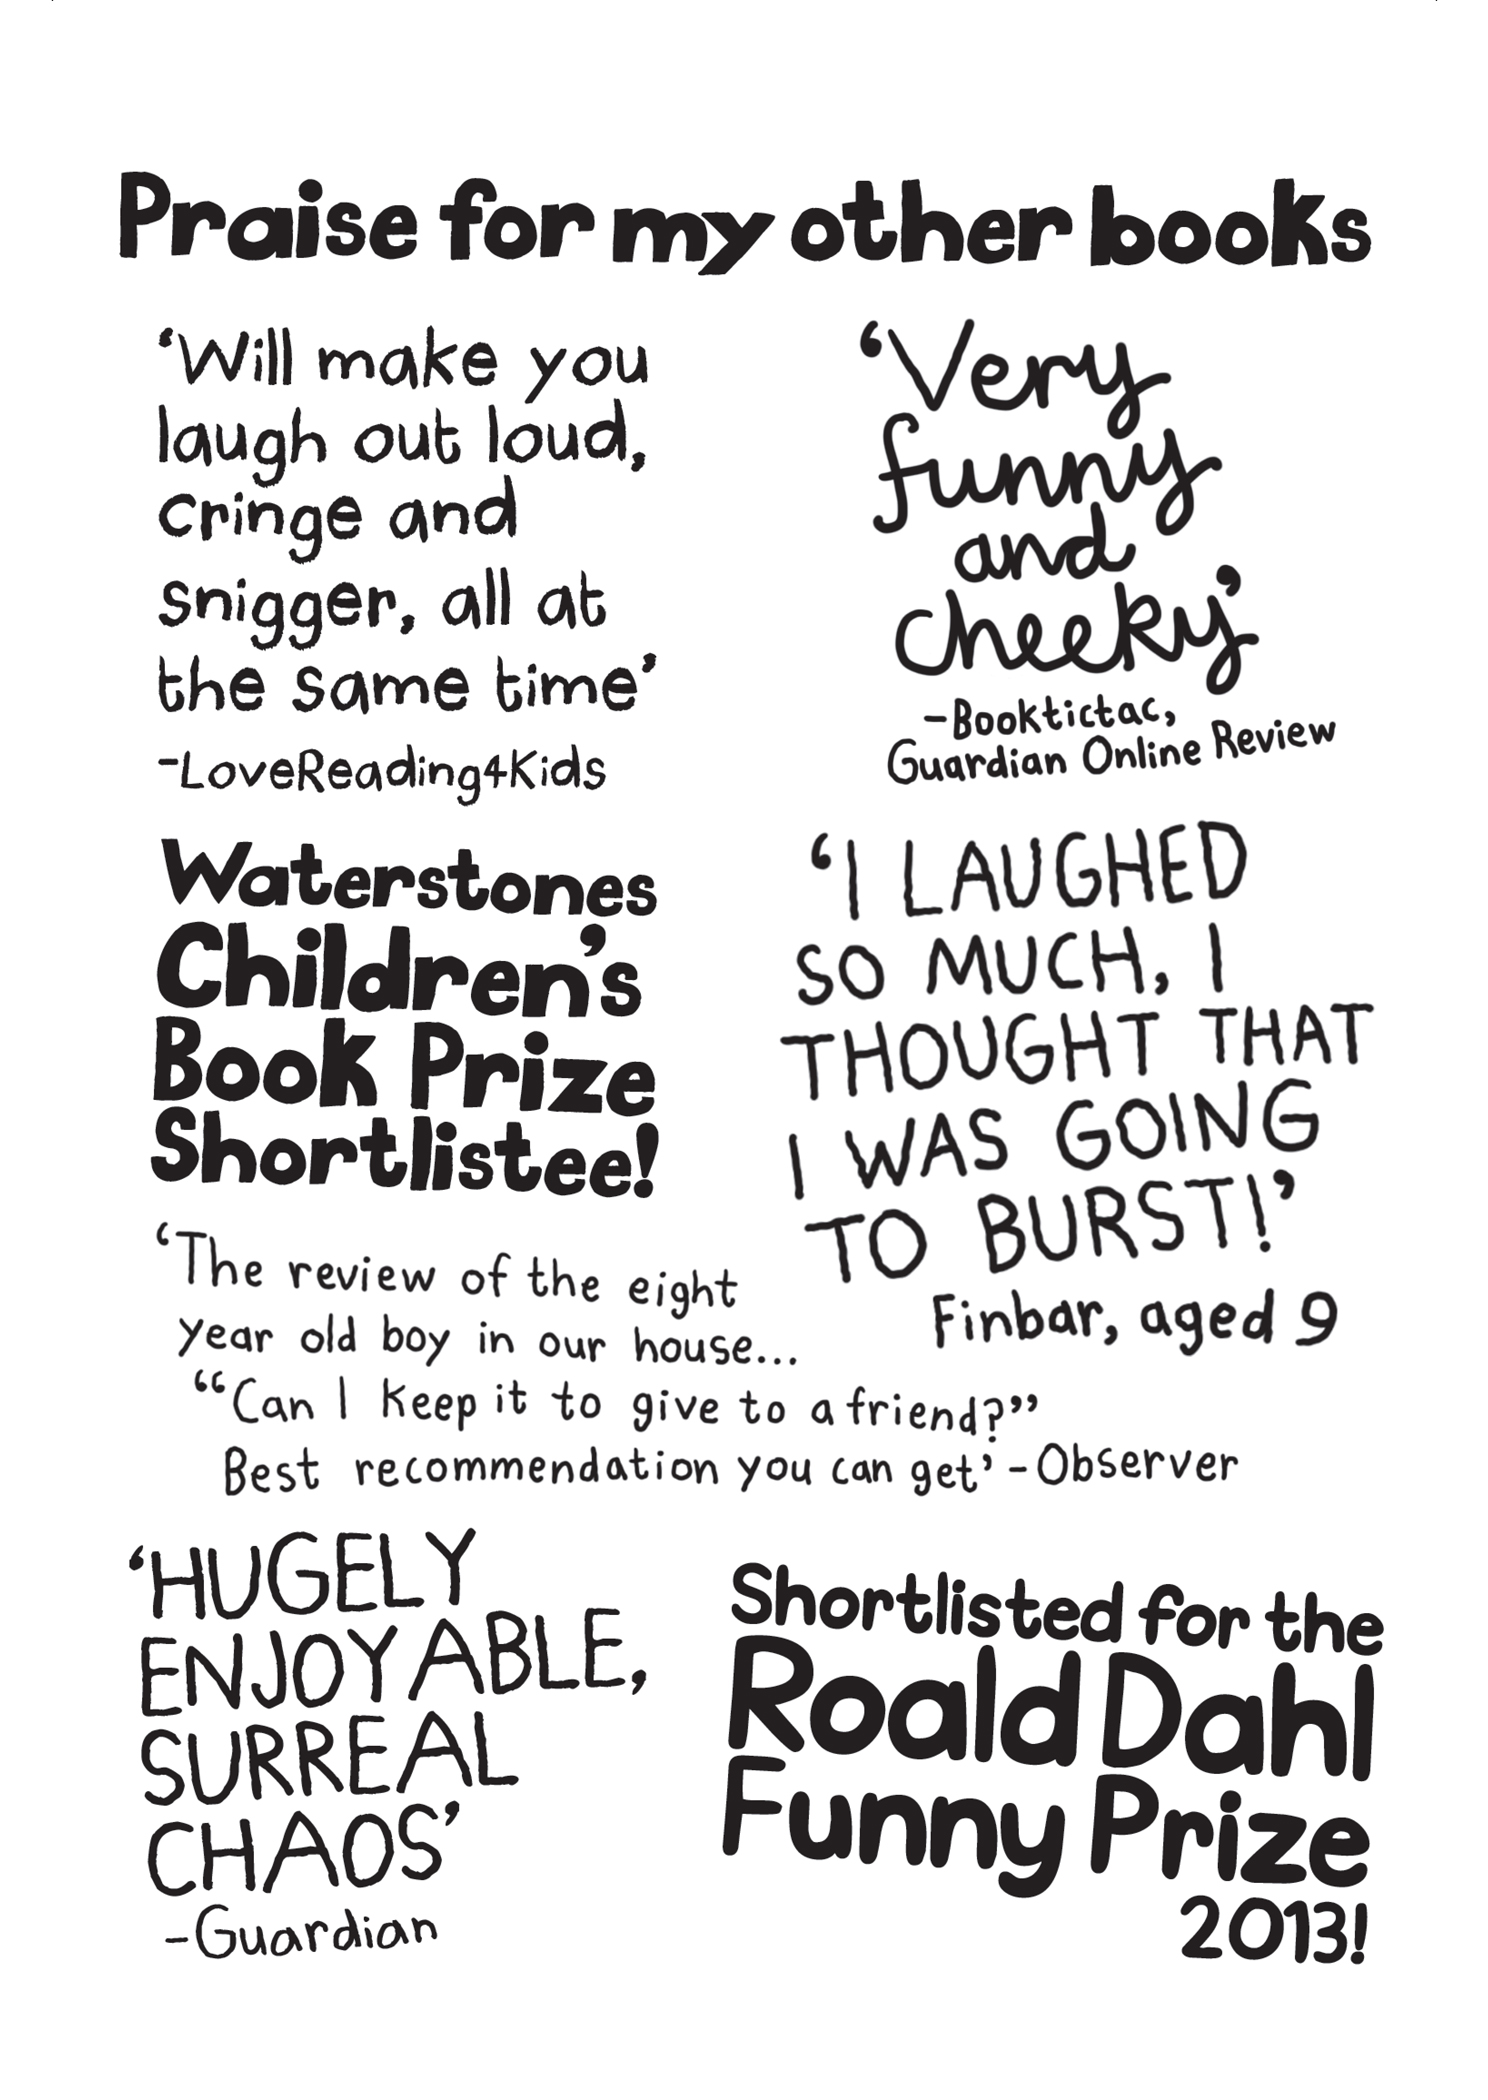 Praise for my other books
‘Will make you
laugh out loud,
cringe and
snigger, all at
the same time’
-LoveReading4Kids
‘Very
funny
and
cheeky’
-Booktictac,
Guardian Online Review
Waterstones
Children's
Book Prize
Shortlistee!
‘I LAUGHED
SO MUCH, I
THOUGHT THAT
I WAS GOING
TO BURST!’
Finbar, aged 9
‘The review of the eight
year old boy in our house...
“Can I keep it to give to a friend?”
Best recommendation you can get’ -Observer
‘HUGELY
ENJOYABLE,
SURREAL
CHAOS’
-Guardian
Shortlisted for the
Roald Dahl
Funny Prize
2013!